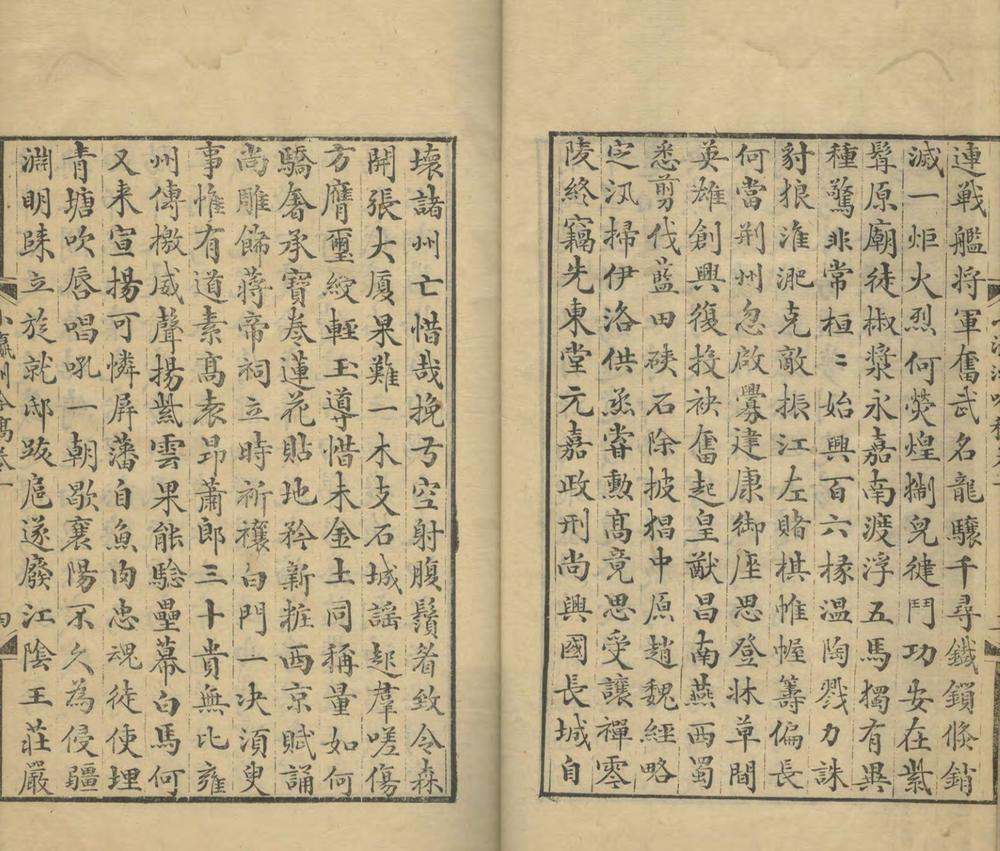 連戰艦将軍奮武名龍驤千尋鐵鎖倏銷
滅一炬火烈何熒煌捌皃徤鬥功安在紫
髯原廟徒椒漿永嘉南渡浮五馬獨有異
種驚非常桓〻始興百六掾温陶戮力誅
豺狼淮淝克敵振江左賭棋帷幄籌偏長
何當荆州忽啟釁建康御座思登牀草間
英雄創興復投袂奮起皇猷昌南燕西蜀
悉剪伐藍田硤石除披猖中原趙魏經略
定汛掃伊洛供烝嘗勳髙竟思受讓禪零
陵終竊先東堂元嘉政刑尚興國長城自
壞諸州亡惜哉挽弓空射腹鬚眷致令森
開張大厦果難一木支石城謡起羣嗟傷
方膺璽綬輕玉導惜未金土同稱量如何
驕奢承寶卷蓮花貼地矜新粧西京賦誦
尚雕飾蔣帝祠立時祈禳白門一决須臾
事惟有道素髙袁昂蕭郎三十貴無比雍
州傳檄威聲揚紫雲果能騐壘幕白馬何
又来宣揚可憐屏藩自魚肉忠魂徒使埋
青塘吹唇唱吼一朝歇襄陽不久為侵疆
淵明踈立旋就邸跋扈遂廢江陰王莊嚴
小瀛洲吟髙卷一
四